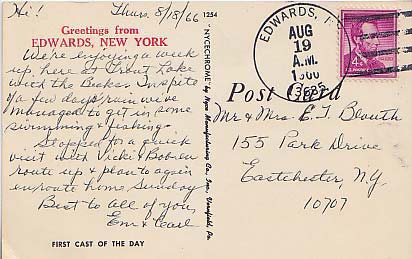 Hi! Thurs. 8/18/66
Greetings from
EDWARDS, NEW YORK
We're enjoying a week
up here at Trout Lake
with the Bakers. In spite
of a few days rain we've
managed to get in some
swimming & fishing.
Stopped for a quick
visit with Vicki & Bob en
route up & plan to again
enroute home Sunday
Best to all of you,
Em & Carl
FIRST CAST OF THE DAY
1254
"NYCECHROME" by Nyce Manufacturing Co., Inc. Vernfield, Pa.
EDWARDS, N.
AUG
19
A.M.
1966
13635
4¢
Post Card
Mr & Mrs E. T. Blouth
155 Park Drive
Eastchester, N.Y.
10707